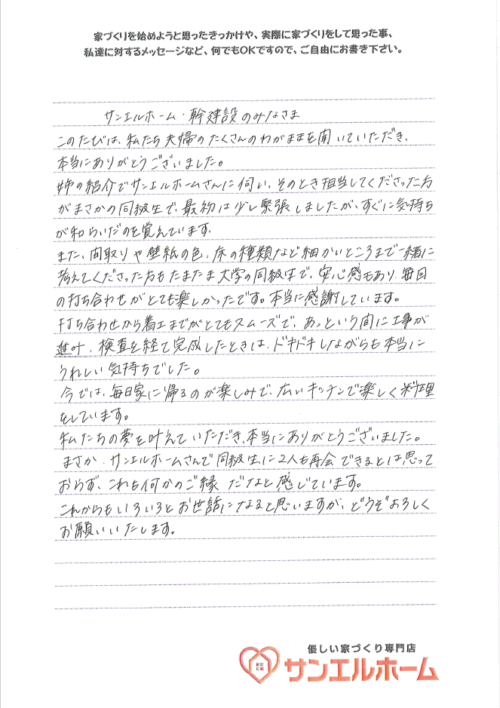 家づくりを始めようと思ったきっかけや、実際に家づくりをして思った事、
私達に対するメッセージなど、何でもOKですので、ご自由にお書き下さい。
サンエルホーム・幹建設のみなさま
このたびは、私たち夫婦のたくさんのわがままを聞いていただき、
本当にありがとうございました。
姉の紹介でサンエルホームさんに伺い、そのとき担当してくださった方
がまさかの同級生で、最初は少し緊張しましたが、すぐに気持ち
が和らいだのを覚えています。
また、間取りや壁紙の色、床の種類など細かいところまで一緒に
考えてくださった方もたまたま大学の同級生で、安心感もあり毎回
の打ち合わせがとても楽しかったです。本当に感謝しています。
打ち合わせから着工までがとてもスムーズで、あっという間に工事が
進み、検査を経て完成したときは、ドキドキしながらも本当に
うれしい気持ちでした。
今では、毎日家に帰るのが楽しみで、広いキッチンで楽しく料理
をしています。
私たちの夢を叶えていただき、本当にありがとうございました。
まさか、サンエルホームさんで同級生に2人も再会できるとは思って
おらず、これも何かのご縁だなと感じています。
これからもいろいろとお世話になると思いますが、どうぞよろしく
お願いいたします。
優しい家づくり専門店
サンエルホーム